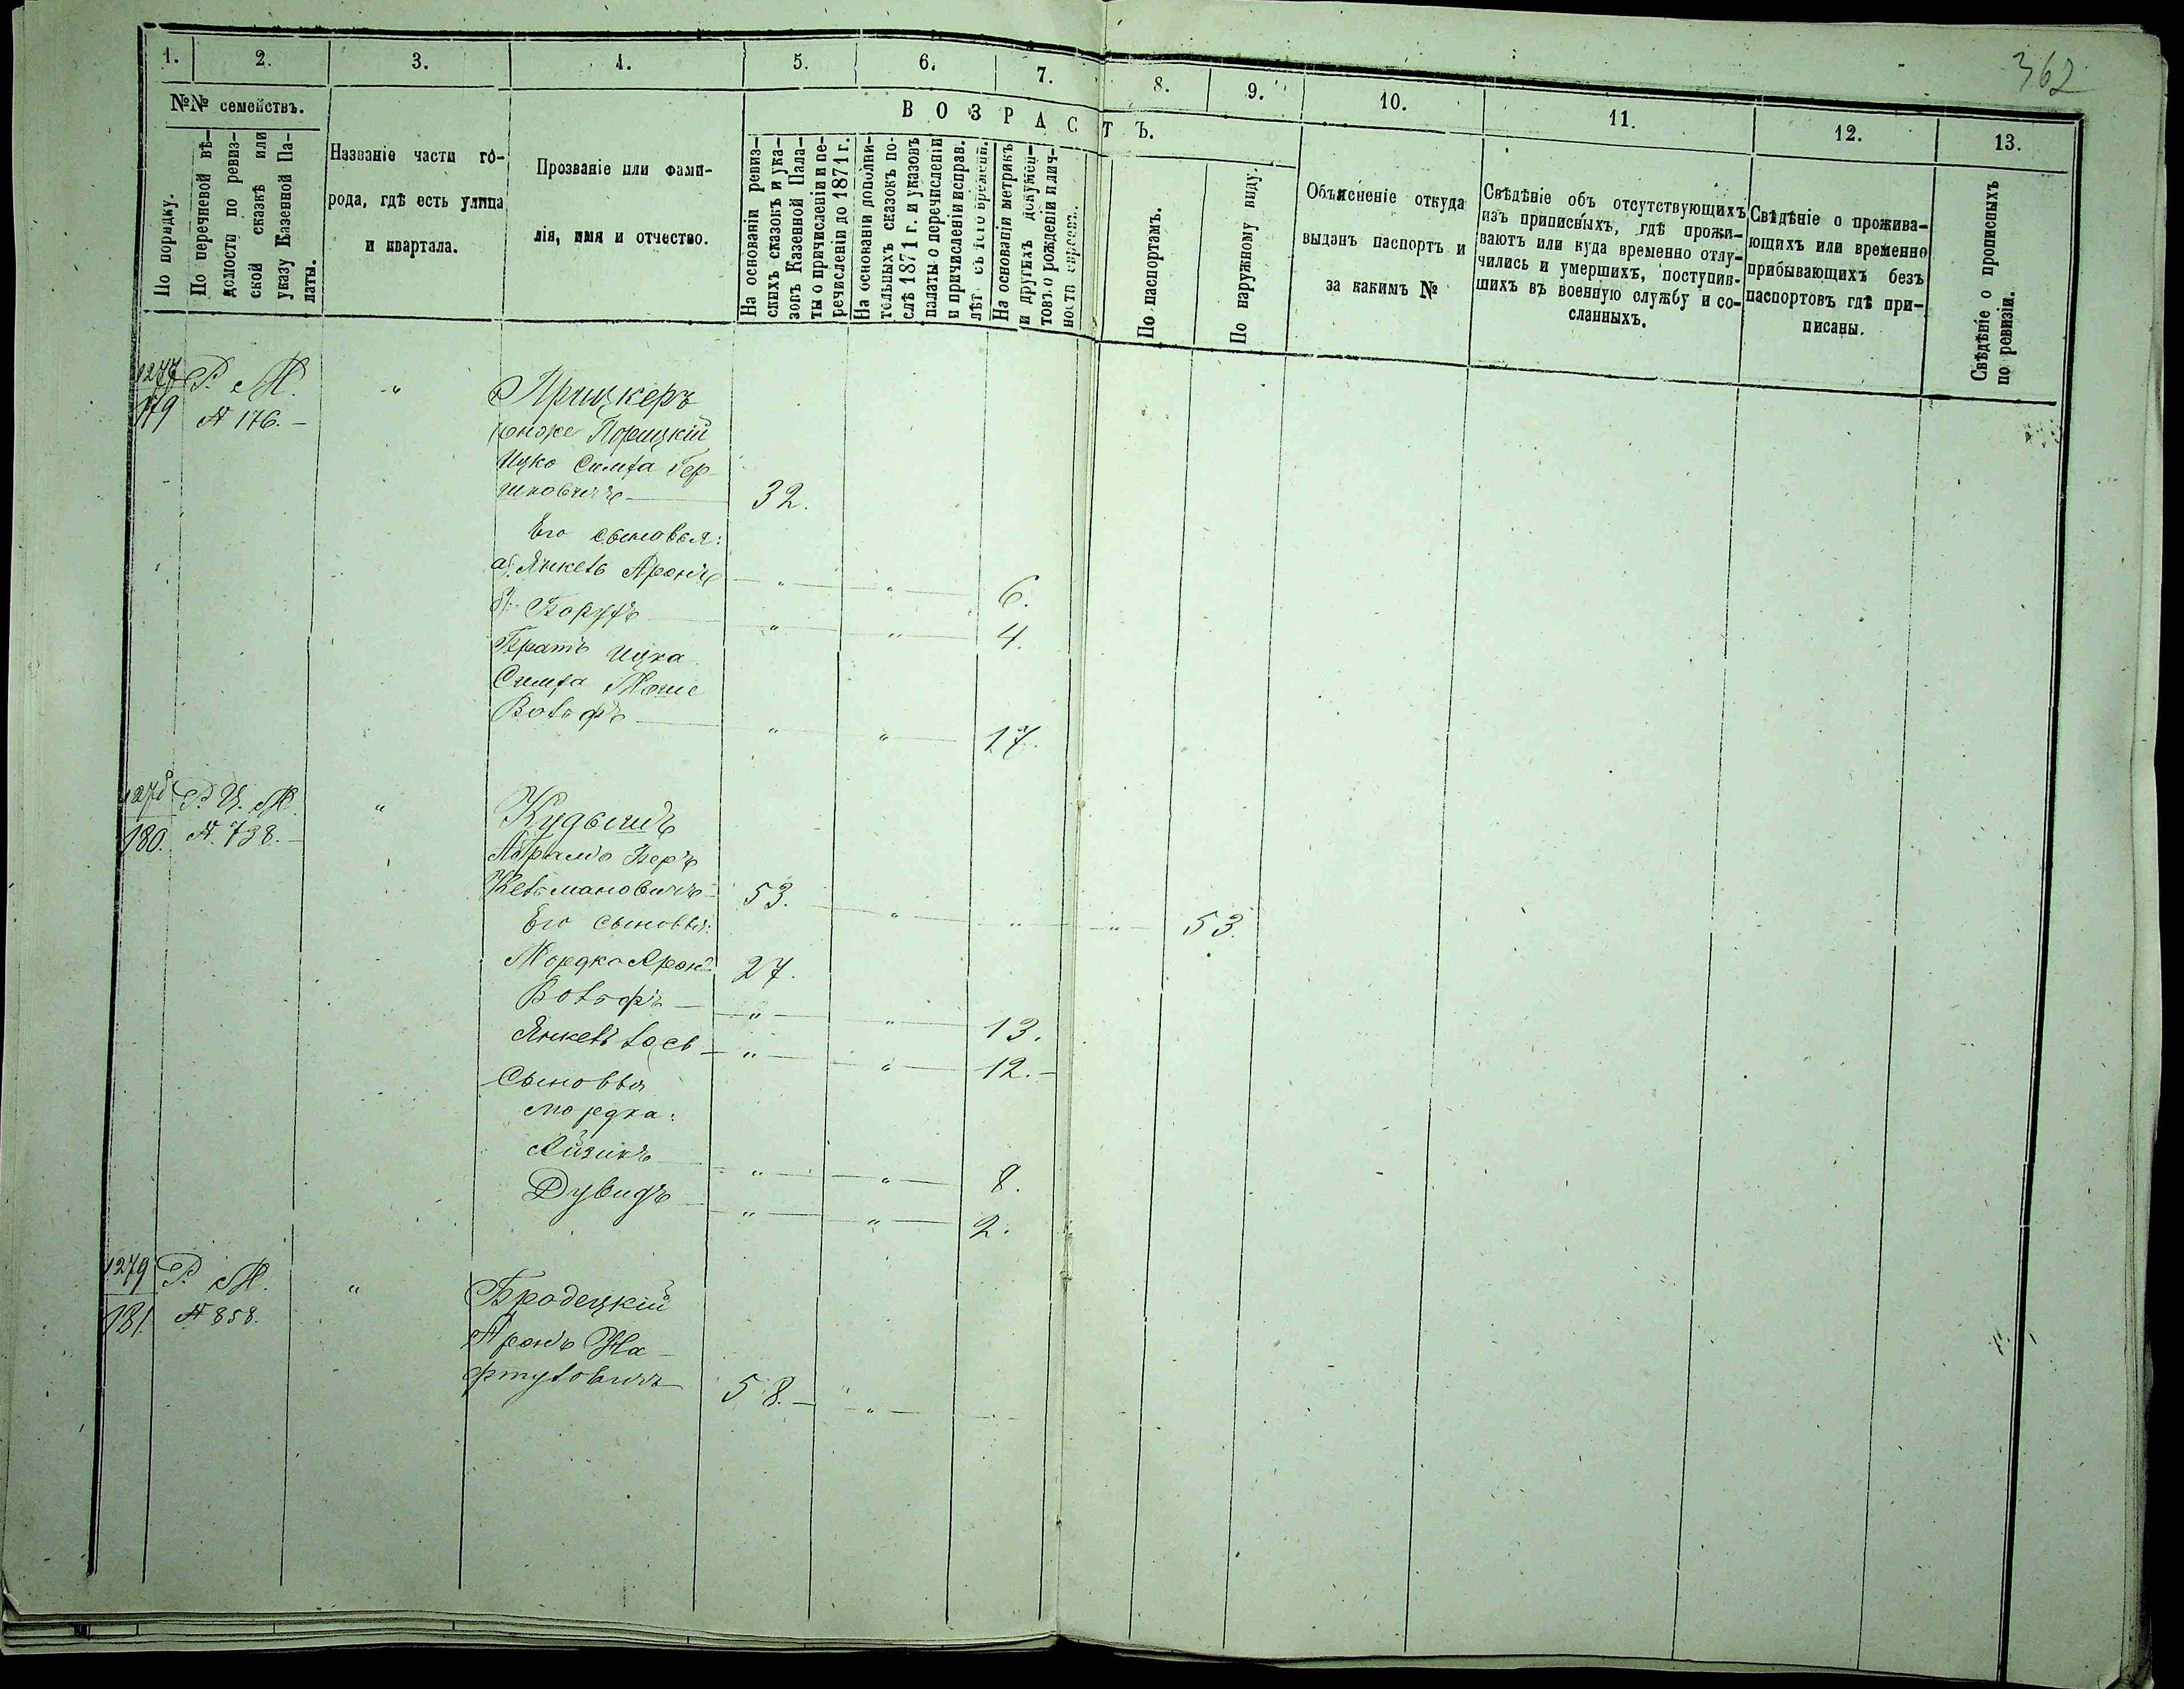 362
1. 2. 3. 4. 5. 6. 7. 8. 9. 10. 11. 12. 13.
№№ семействъ.
По порядку.
По перечневой вѣ-
домости по ревиз-
ской сказкѣ или
указу Казенной Па-
латы.
Названіе части го-
рода, гдѣ есть улица
и квартала.
Прозваніе или фами-
лія, имя и отчество.
ВОЗРАСТЪ.
На основаніи ревиз-
скихъ сказокъ и ука-
зовъ Казенной Пала-
ты о причисленіи и пе-
речисленіи до 1871 г.
На основаніи дополни-
тельныхъ сказокъ по-
слѣ 1871 г. и указовъ
палаты о перечисленіи
и причисленіи исправ.
лѣт съ того времени.
На основаніи метрикъ
и другихъ докумен-
товъ о рожденіи и лич-
ности евреевъ.
По паспортамъ.
По наружному виду.
Объясненіе откуда
выданъ паспортъ и
за какимъ №
Свѣдѣніе объ отсутствующихъ
изъ приписныхъ, гдѣ прожи-
ваютъ или куда временно отлу-
чились и умершихъ, поступив-
шихъ въ военную службу и со-
сланныхъ.
Свѣдѣніе о прожива-
ющихъ или временно
прибывающихъ безъ
паспортовъ гдѣ при-
писаны.
Свѣдѣніе о прописныхъ
по ревизіи.
1277 Р. М. " Прицкеръ
179 № 176. – онъже Порицкій
Ицко Симха Гер-
шковичъ 32.
Его сыновья:
а) Янкель Аронъ " " 6.
б) Борухъ " " 4.
Братъ Ицка
Симха Моше
Вольфъ " " 17.
1278 Р. Ц. М. " Кудышъ
180. № 738. – Абрамъ Беръ
Кельмановичъ 53. " " " 53.
Его сыновья:
Мордко Аронъ 27.
Вольфъ " " 13.
Янкель Іось " " 12. –
Сыновья
Мордка:
Айзикъ " " 8.
Дувидъ " " 2.
1279 Р. М. " Бродецкій
181. № 858. Аронъ На-
фтуловичъ 58. – " "